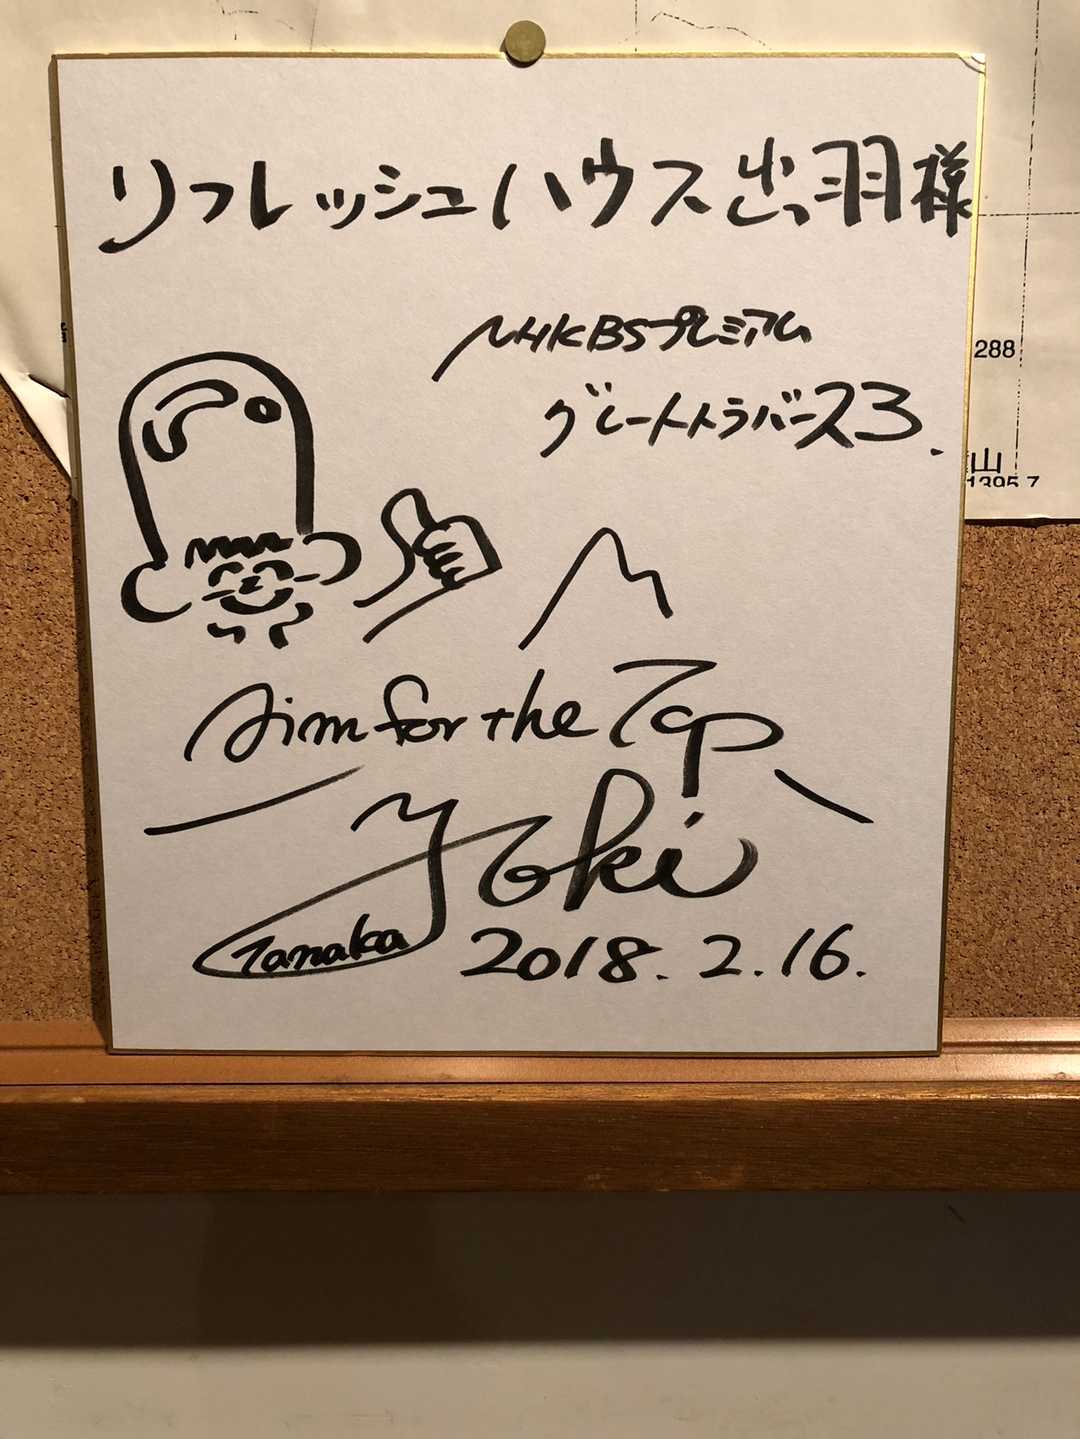 リフレッシュハウス出羽様
NHKBSプレミアム
グレートトラバース3.
288
山
1395.7
Aim for the Top
Yoki
Tanaka
2018.2.16.